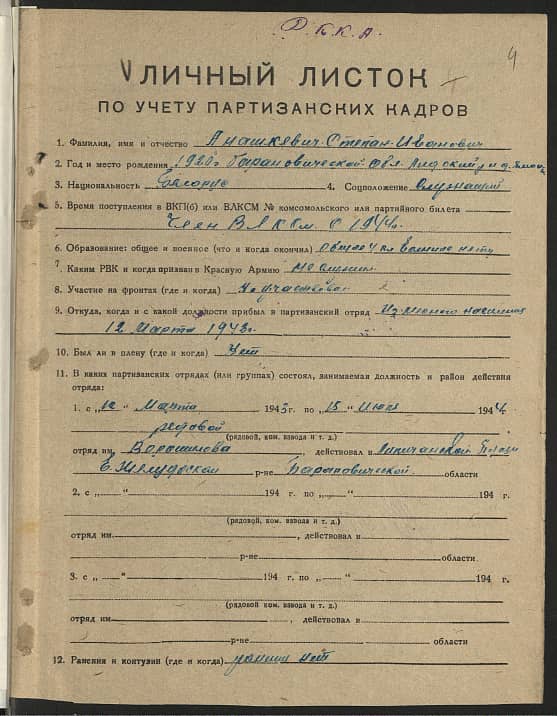 Р.К.К.А.
4
ЛИЧНЫЙ ЛИСТОК
ПО УЧЕТУ ПАРТИЗАНСКИХ КАДРОВ
1. Фамилия, имя и отчество Анашкевич Степан Иванович
2. Год и место рождения 1920г Барановической обл. Лидский
3. Национальность Белорус 4. Соцположение Служащий
5. Время поступления в ВКП(б) или ВЛКСМ № комсомольского или партийного билета
Член ВЛКСМ с 1944г.
6. Образование: общее и военное (что и когда окончил) общее 4 кл Военное нету
7. Каким РВК и когда призван в Красную Армию не служил
8. Участие на фронтах (где и когда) Не участвовал
9. Откуда, когда и с какой должности прибыл в партизанский отряд Из местного населения
12 Марта 1943г.
10. Был ли в плену (где и когда) Нет
11. В каких партизанских отрядах (или группах) состоял, занимаемая должность и район действия
отряда:
1. с „12“ Марта 1943г. по „15“ Июля 1944г.
рядовой
(рядовой, ком. взвода и т. д.)
отряд им Ворошилова, действовал в Липичанской Пущи
Желудокской р-не Барановической области
2. с „ “ 194 г. по „ “ 194 г.
(рядовой, ком. взвода и т. д.)
отряд им , действовал в
р-не области.
3. с „ “ 194 г. по „ “ 194 г.
(рядовой ком. взвода и т. д.)
отряд им , действовал в
р-не области
12. Ранения и контузии (где и когда) ранений нет